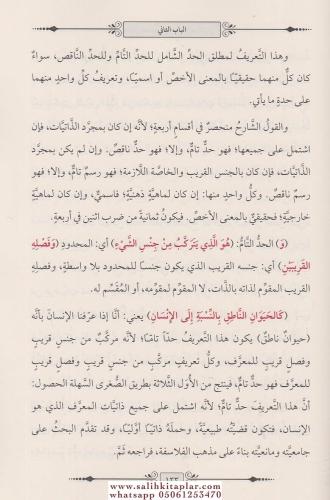 الباب الثاني
وهذا التَّعريفُ لمطلق الحدِّ الشَّاملِ للحدِّ التَّامِّ وللحدِّ النَّاقصِ، سواءٌ
كان كلٌّ منهما حقيقيًّا بالمعنى الأخصِّ أو اسميًّا، وتعريفُ كلِّ واحدٍ منهما
على حدةٍ ما يأتي.
والقولُ الشَّارحُ منحصرٌ في أقسامٍ أربعةٍ؛ لأنَّه إن كان بمجرَّد الذَّاتيَّات، فإن
اشتمل على جميعها؛ فهو حدٌّ تامٌّ، وإلَّا؛ فهو حدٌّ ناقصٌ. وإن لم يكن بمجرَّد
الذَّاتيَّات، فإن كان بالجنس القريب والخاصَّة اللَّازمة؛ فهو رسمٌ تامٌّ، وإلَّا؛ فهو
رسم ناقصٌ. وكلُّ واحدٍ منها: إن كان لماهيَّةٍ ذهنيَّةٍ؛ فاسميٌّ، وإن كان لماهيَّةٍ
خارجيَّةٍ؛ فحقيقيٌّ بالمعنى الأخصِّ. فيكونُ ثمانيةً من ضرب اثنين في أربعةٍ.
(وَ) الحدُّ التَّامُّ: (هُوَ الَّذِي يَتَرَكَّبُ مِنْ جِنْسِ الشَّيْءِ) أي: المحدودِ (وَفَصْلِهِ
القَرِيبَيْنِ) أي: جنسه القريب الذي يكون جنسًا للمحدود بلا واسطةٍ، وفصلِه
القريب المقوِّم لذاته بالذَّات، لا المقوِّم لمقوِّمه، أو المُقَسِّم له.
(كَالحَيَوَانِ النَّاطِقِ بِالنِّسْبَةِ إِلَى الإِنْسَانِ) يعني: أنَّا إذا عرَّفنا الإنسانَ بأنَّه
(حيوانٌ ناطقٌ) يكون هذا التَّعريفُ حدًّا تامًّا؛ لأنَّه مركَّبٌ من جنسٍ قريبٍ
وفصلٍ قريبٍ للمعرَّف، وكلُّ تعريفٍ مركَّبٍ من جنسٍ قريبٍ وفصلٍ قريبٍ
للمعرَّف فهو حدٌّ تامٌّ، فينتج من الأوَّل الثَّلاثة بطريق الصُّغرى السَّهلة الحصول:
أنَّ هذا التَّعريفَ حدٌّ تامٌّ؛ لأنَّه اشتمل على جميع ذاتيَّات المعرَّف الذي هو
الإنسان، فتكون قضيَّتُه طبيعيَّةً، وحملُه ذاتيًّا أوَّليًّا، وقد تقدَّم البحثُ على
جامعيَّته ومانعيَّته بناءً على مذهب الفلاسفة، فراجعه ثَمَّ.
١٣٣
www.salihkitaplar.com
whatsapp 05061253470